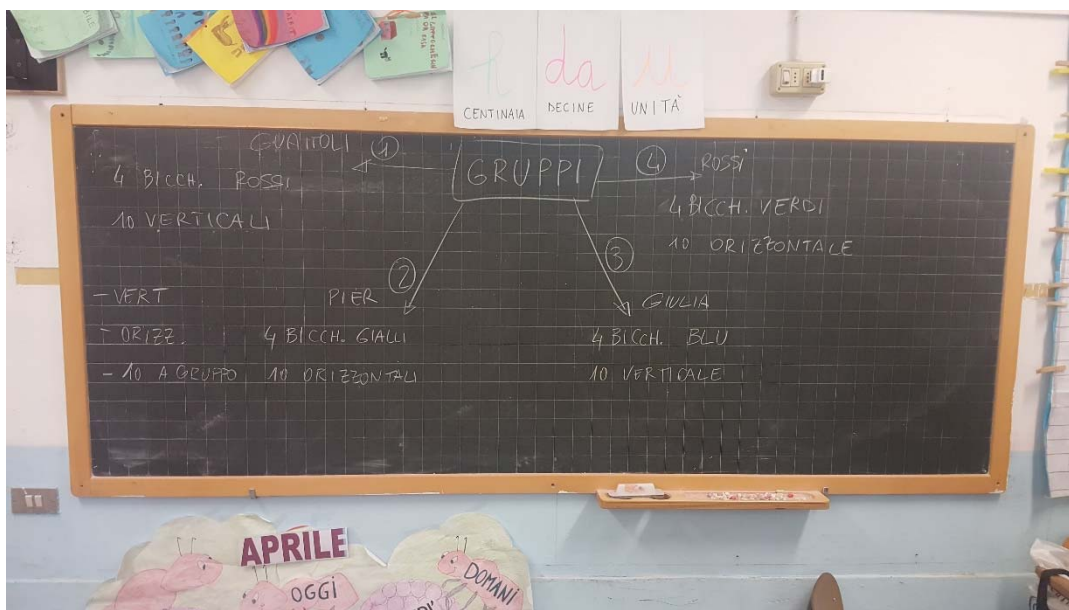 h
CENTINAIA
da
DECINE
u
UNITÀ
GRUPPI
1
4 BICCH. ROSSI
10 VERTICALI
4
ROSSI
4 BICCH. VERDI
10 ORIZZONTALE
2
PIER
4 BICCH. GIALLI
10 ORIZZONTALI
3
GIULIA
4 BICCH. BLU
10 VERTICALE
- VERT
- ORIZZ.
- 10 A GRUPPO
APRILE
OGGI
DOMANI